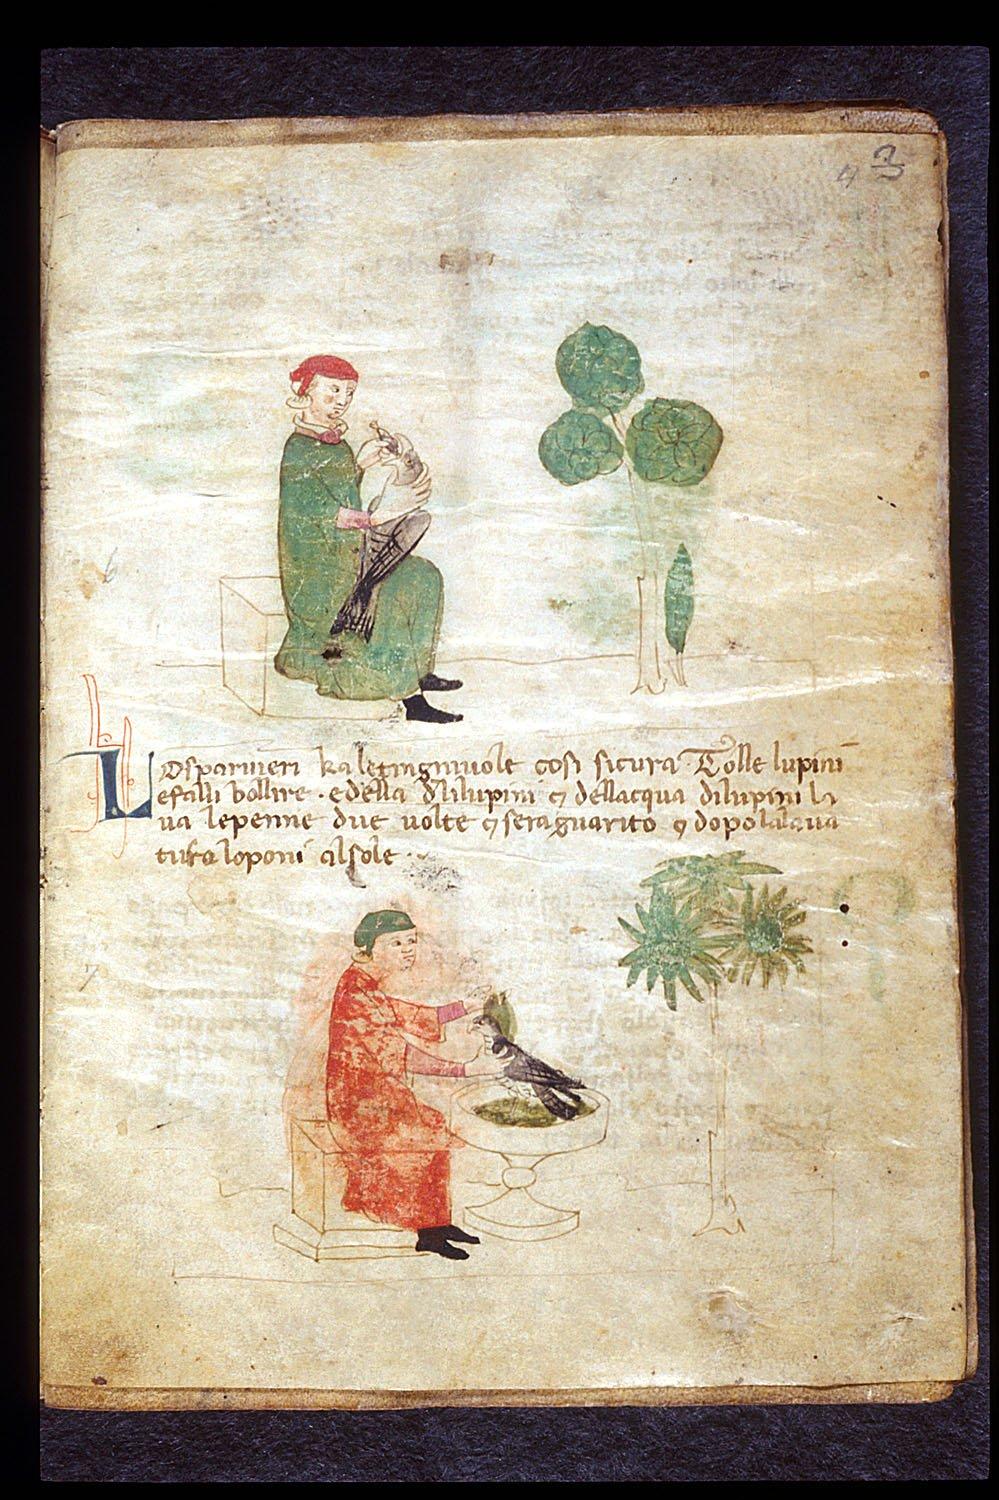 3
Losparuieri ka le tingniuole cosi sicura. Tolle lupini
efalli bollire. edella dilupini ꝯ dellacqua dilupini la
ua lepenne due uolte ꝯ seraguarito ꝯ dopolalaua
tura loponi alsole.